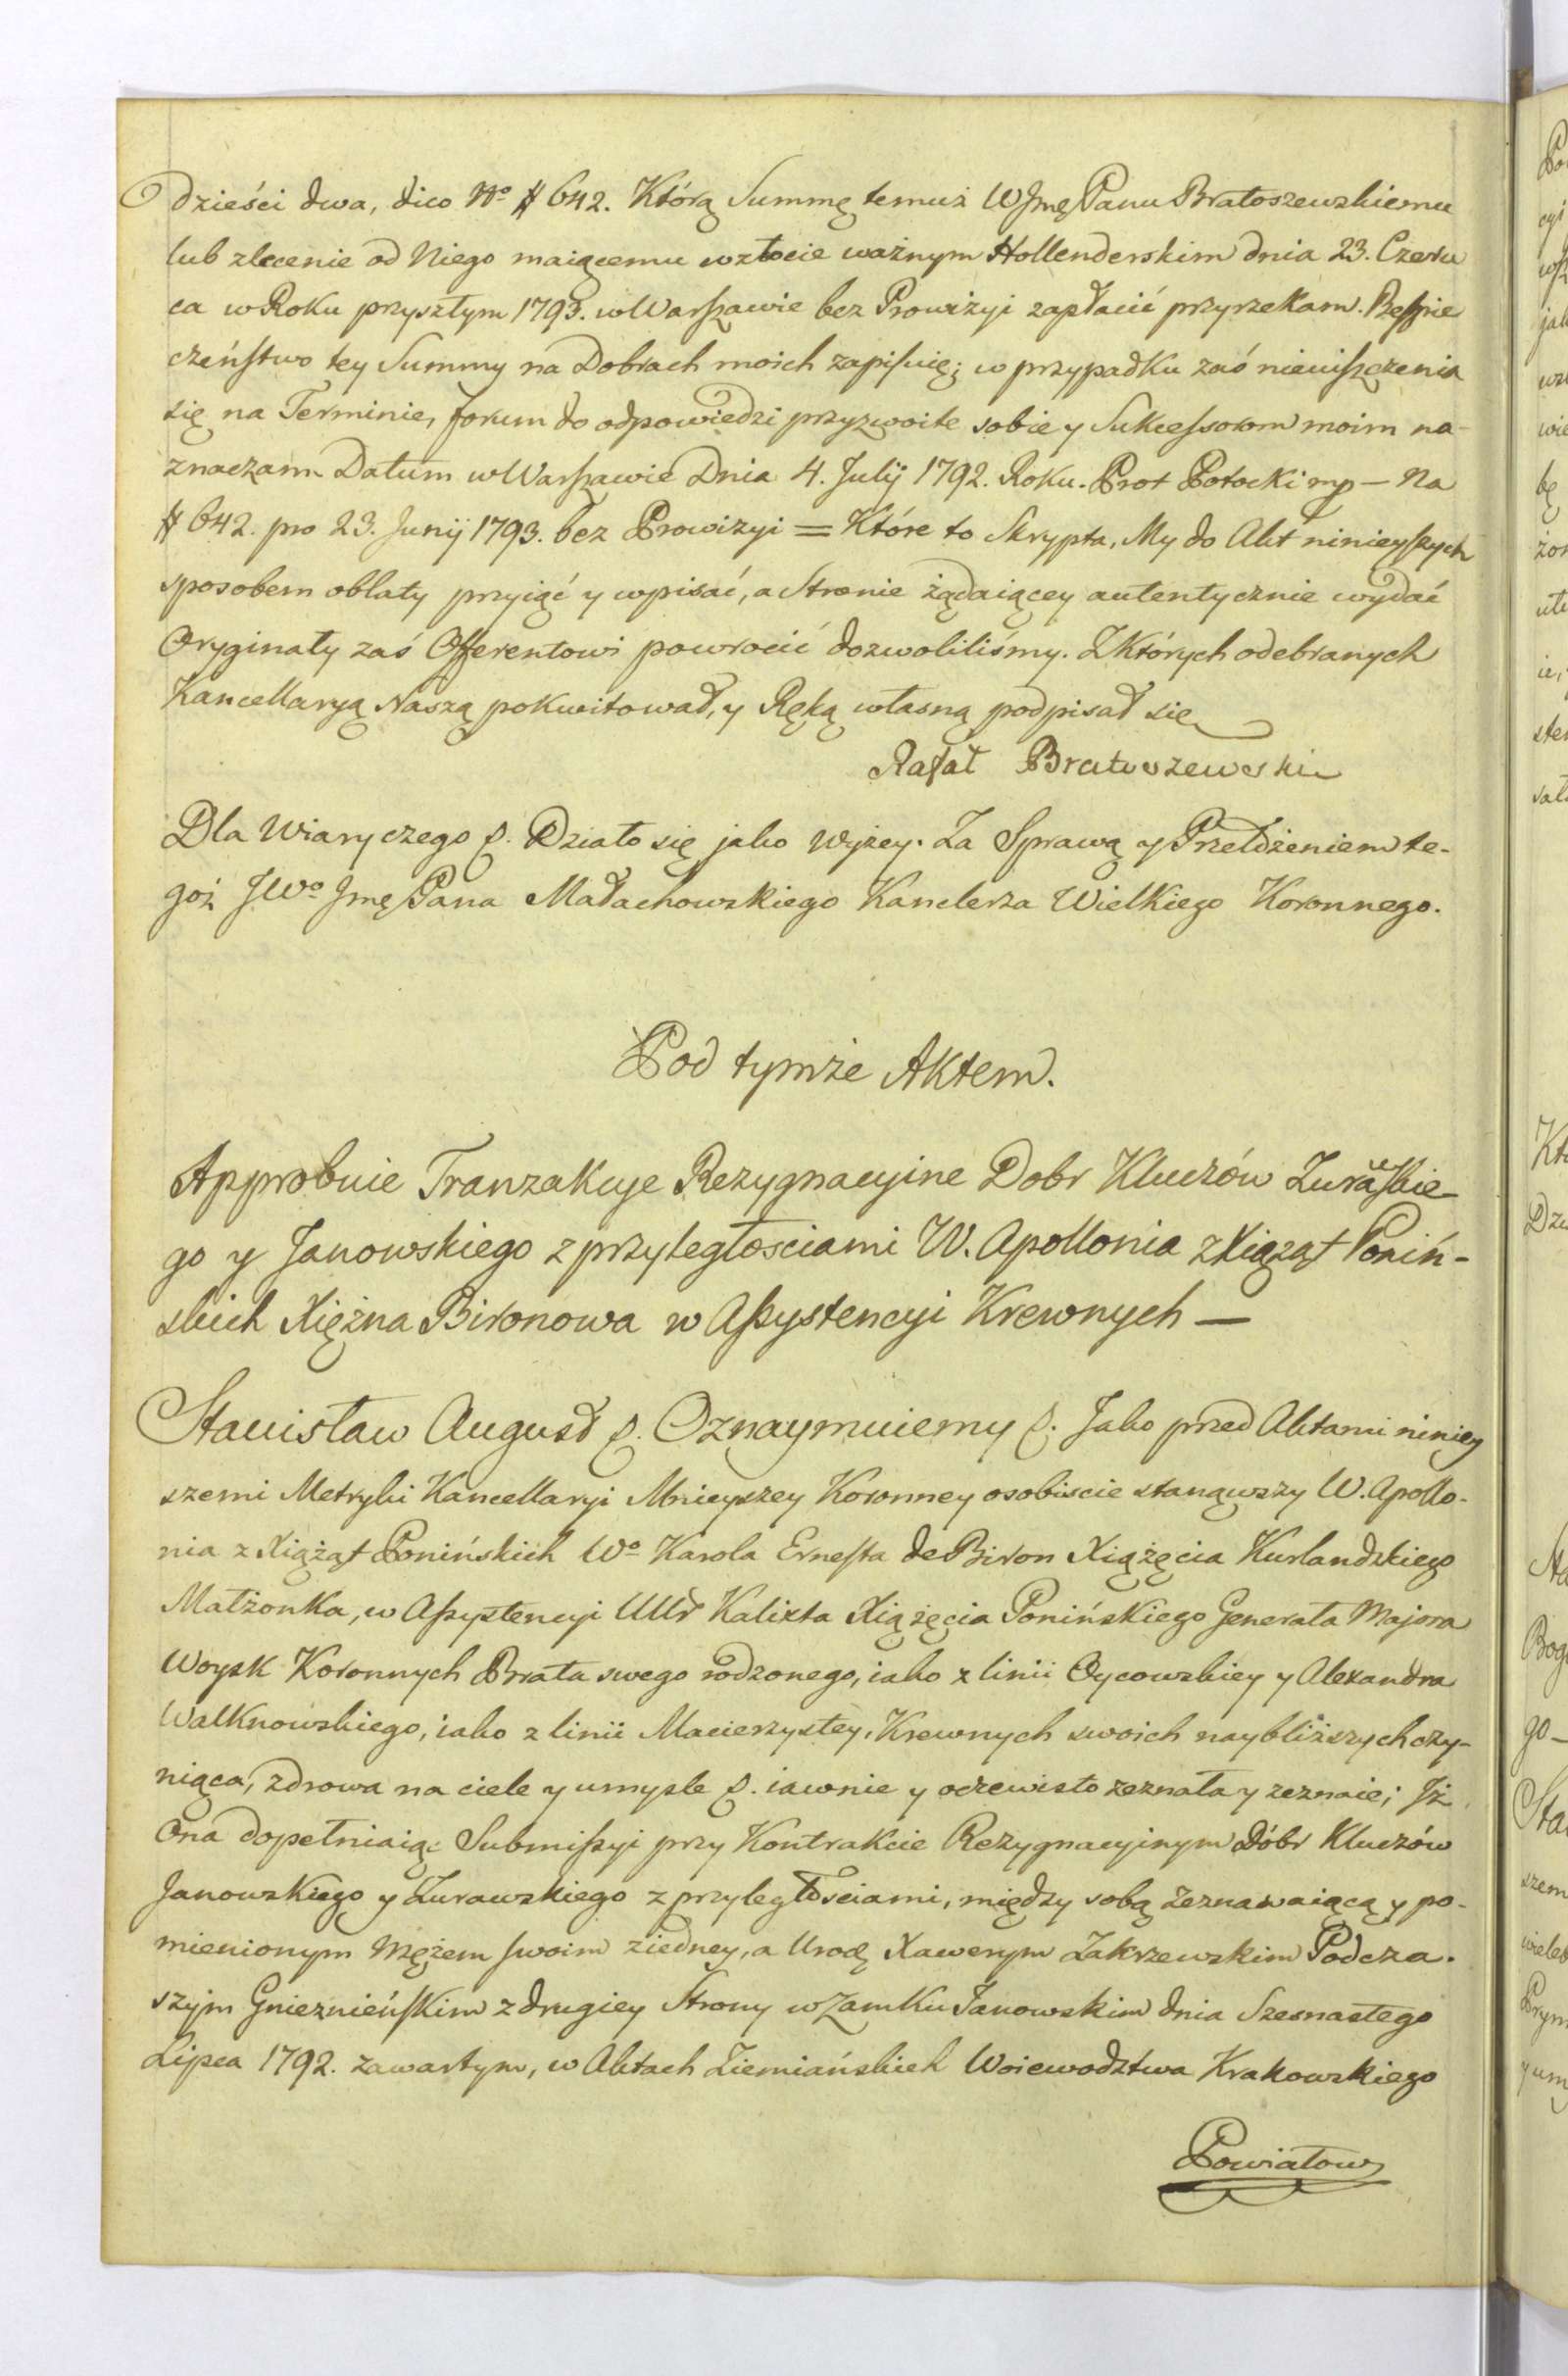 dzieści dwa, dico No # 642. Którą Summę temuż WJmę Panu Bratoszewskiemu
lub zlecenie od Niego maiącemu wzłocie ważnym Hollenderskim dnia 23. Czerw
ca w Roku przyszłym 1793. w Warszawie bez Prowizyi zapłacić przyrzekam. Beśpie
czeństwo tey Summy na Dobrach moich zapisuię; w przypadku zaś nieuiszczenia
się na Terminie, forum do odpowiedzi przyzwoite sobie y Sukcessorom moim na-
znaczam Datum w Warszawie Dnia 4. Julij 1792. Roku. Prot Potocki mp — Na
# 642. pro 23. Junij 1793. bez Prowizyi = Które to Skrypta, My do Akt ninieyszych
sposobem oblaty przyiąć y wpisać, a Stronie żądaiącey autentycznie wydać
Oryginały zaś Offerentowi powrocić dozwoliliśmy. Z Których odebranych
Kancellaryą Naszą pokwitował, y Ręką własną podpisał się
Rafał Bratoszewski
Dla Wiary czego p. Działo się jako wyżey. Za Sprawą y Przełożeniem te-
goż JWo Jmę Pana Małachowskiego Kanclerza Wielkiego Koronnego.
Pod tymże Aktem.
Approbuie Tranzakcye Rezygnacyine Dobr Kluczów Żurawskie-
go y Janowskiego z przyległosciami W. Apollonia z Xiążąt Poniń-
skich Xiężna Bironowa w Assystencyi Krewnych —
Stanisław August p. Oznaymuiemy p. Jako przed Aktami niniey
szemi Metryki Kancellaryi Mnieyszey Koronney osobiscie stanąwszy W. Apollo-
nia z Xiążąt Ponińskich Wo Karola Ernesta de Biron Xiążęcia Kurlandzkiego
Małżonka, w Assystencyi UUr Kalixta Xiążęcia Ponińskiego Generała Majora
Woysk Koronnych Brata swego rodzonego, iako z linii Oycowskiey y Alexandra
Walknowskiego, iako z linii Macierzystey, Krewnych swoich naybliższych czy-
niąca, zdrowa na ciele y umysle p. iawnie y oczewisto zeznała y zeznaie; Iż
Ona dopełniaiąc Submissyi przy Kontrakcie Rezygnacyinym Dóbr Kluczów
Janowskiego y Żurawskiego z przyległościami, między sobą zeznawaiącą y po-
mienionym Mężem swoim ziedney, a Urodz Xawerym Zakrzewskim Podcza-
szym Gnieznieńskim z drugiey Strony w Zamku Janowskim dnia Szesnastego
Lipca 1792. zawartym, w Aktach Ziemiańskich Woiewodztwa Krakowskiego
Powiatow